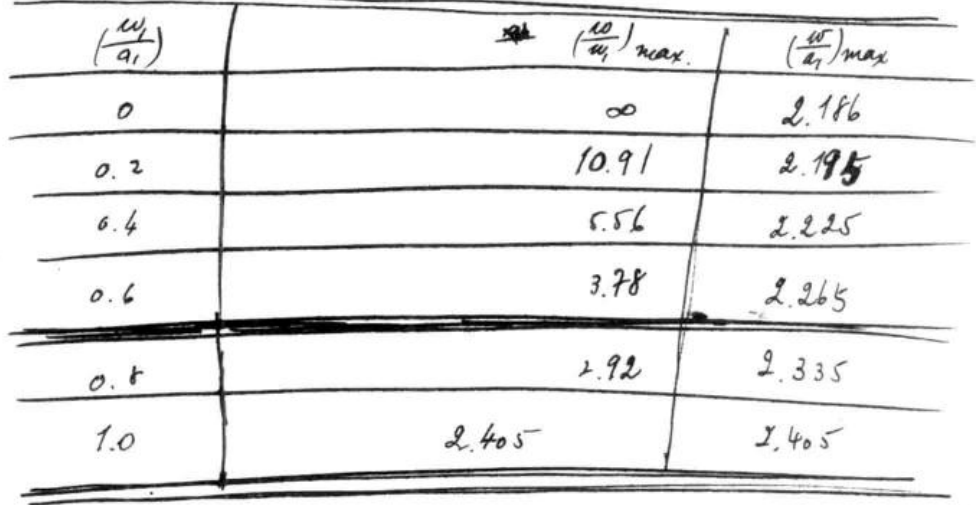 (w₁/a₁) (w/w₁) max. (w/a₁) max
0 ∞ 2.186
0.2 10.91 2.195
0.4 5.56 2.225
0.6 3.78 2.265
0.8 2.92 2.335
1.0 2.405 2.405